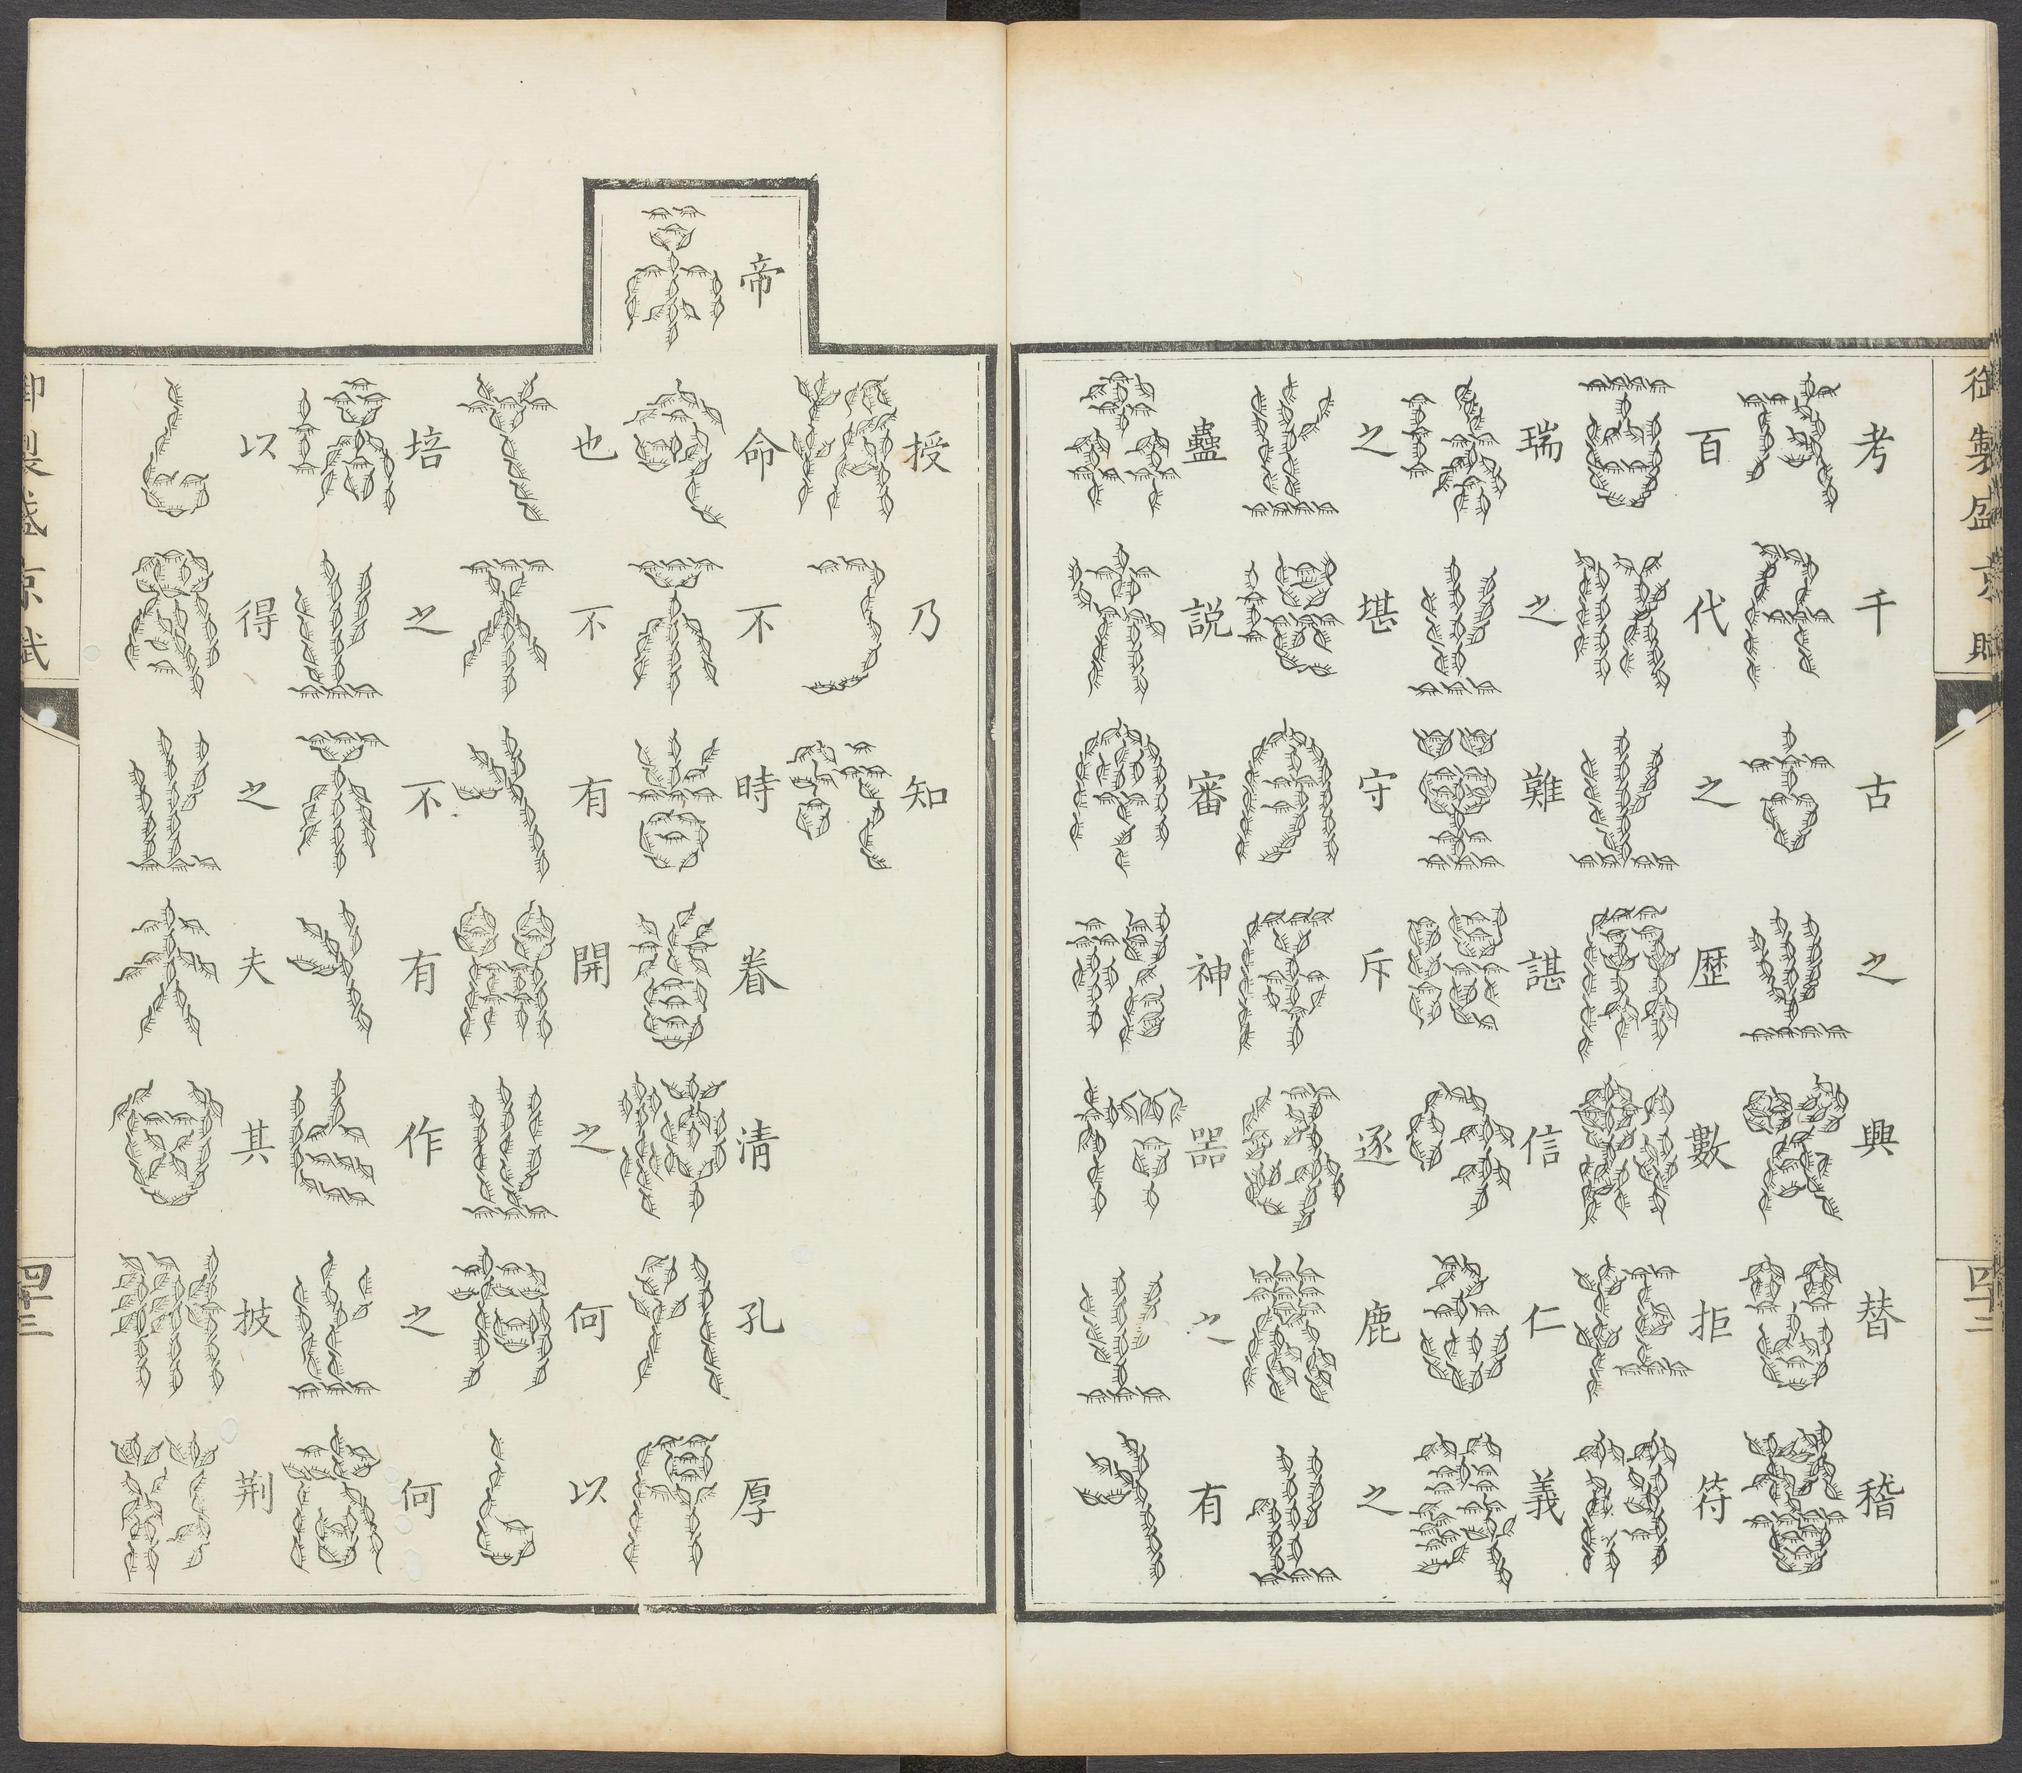 御製盛京賦
四十二
考千古之興替稽
百代之歷數拒符
瑞之難諶信仁義
之堪守斥逐鹿之
蠱說審神噐之有
授乃知
帝命不時眷清孔厚
也不有開之何以
培之不有作之何
以得之夫其披荆
御製盛京賦
四十三